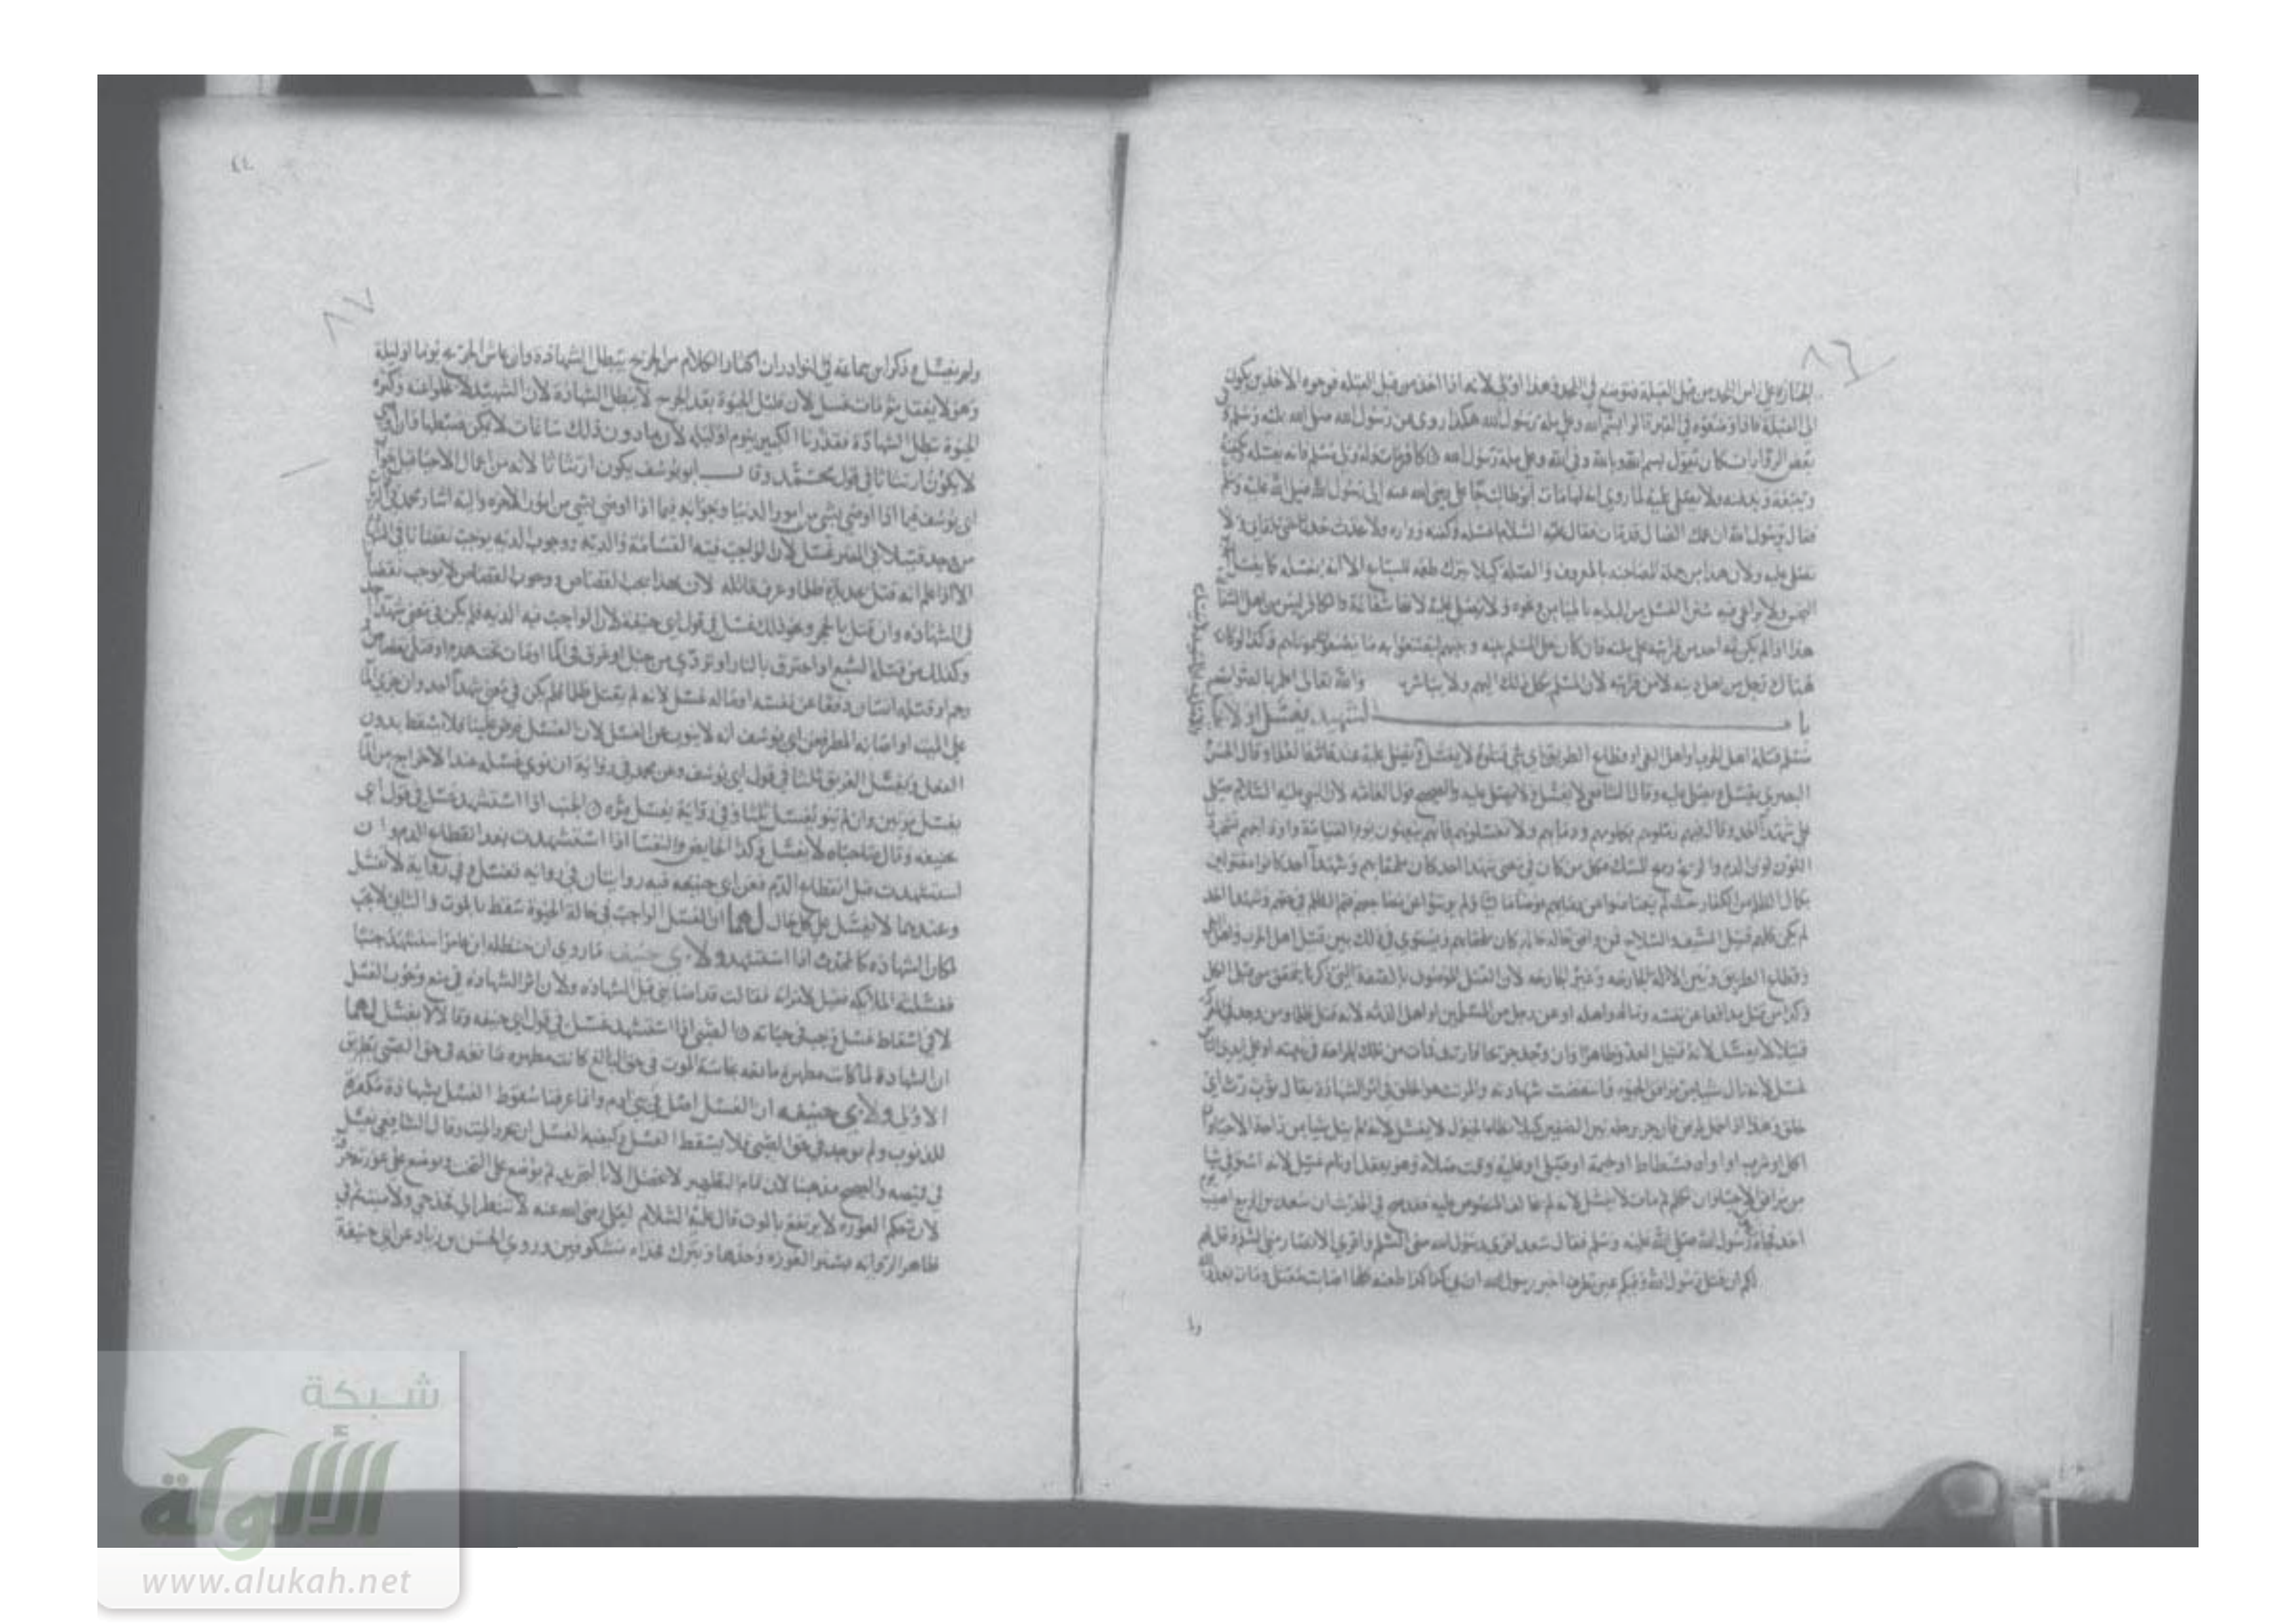 ٨٦
الجنازة على رأس اللحد من قبل القبلة فتوضع في اللحد فهذا أولى لأنه إذا أخذ من قبل القبلة فوجوه الآخذين يكون
إلى القبلة فإذا وضعوه في القبر قالوا بسم الله وعلى ملة رسول الله هكذا روي عن رسول الله صلى الله عليه وسلم
بعض الروايات كان يقول بسم الله وبالله وفي الله وعلى ملة رسول الله كافر مات وله ولي مسلم فإنه يغسله ويكفنه
ويتبعه ويدفنه ولا يصلي عليه لما روي أنه لما مات أبو طالب جاء علي رضي الله عنه إلى رسول الله صلى الله عليه وسلم
فقال يا رسول الله إن عمك الضال قد مات فقال عليه السلام اغسله وكفنه وواره ولا تحدث حدثا حتى تلقاني ولا
يصلى عليه ولأن هذا من جملة المصاحبة بالمعروف والصلة كيلا يترك طعمة للسباع إلا أنه يغسله كما يغسل
النجس ولا يراعى فيه سنن الغسل من البداية بالميامن ونحوه ولا يصلى عليه لأنها شفاعة والكافر ليس من أهل الشفاعة
هذا إذا لم يكن ثمة أحد من قرابته على ملته فإن كان خلى المسلم بينه وبينهم ليصنعوا به ما يصنعون بموتاهم وكذا لو كان
هناك رجل من أهل دينه لا من قرابته لأن المسلم يكل ذلك إليهم ولا يباشر والله تعالى أعلم بالصواب
باب الشهيد يغسل أو لا
مسلم قتله أهل الحرب أو أهل البغي أو قطاع الطريق بأي شيء قتلوه لا يغسل ويصلى عليه عند عامة العلماء وقال الحسن
البصري يغسل ويصلى عليه وقال الشافعي لا يغسل ولا يصلى عليه والصحيح قول العامة لأن النبي عليه السلام صلى
على شهداء أحد وقال فيهم زملوهم بكلومهم ودمائهم ولا تغسلوهم فإنهم يبعثون يوم القيامة وأوداجهم تشخب
اللون لون الدم والريح ريح المسك فكل من كان في معنى شهداء أحد كان ملحقا بهم وشهداء أحد كانوا مقتولين
لم يكن كلهم قتيل السيف والسلاح فمن وافق حاله حالهم كان ملحقا بهم ويستوي في ذلك بين قتل أهل الحرب وأهل
وقطاع الطريق وبين الآلة الجارحة وغير الجارحة لأن القتل الموصوف بالصفة التي ذكرنا يتحقق من قبل الكل
وكذا من قتل مدافعا عن نفسه وماله وأهله أو عن رجل من المسلمين أو أهل الذمة لأنه قتل ظلما ومن وجد في المعركة
قتيلا لا يغسل لأنه قتيل العدو ظاهرا وإن وجد جريحا فارتث فمات من تلك الجراحة في بيته أو على أيدي الناس
غسل لأنه نال شيئا من مرافق الحياة فانتقصت شهادته والمرتث هو الخلق في أثر الشهادة يقال ثوب رث أي
خلق وهذا إذا حمل لمرض فإن جر برجله بين الصفين كيلا تطأه الخيول لا يغسل لأنه لم ينل شيئا من راحة الأحياء
أكل أو شرب أو آواه فسطاط أو خيمة أو صلى أو عليه وقت صلاة وهو يعقل أو نام غسل لأنه استوفى شيئا
من مرافق الأحياء وإن تكلم ثم مات لا يغسل لأنه لم يخالف المنصوص عليه فقد صح في الحديث أن سعد بن الربيع أصيب
أحد فجاءه رسول رسول الله صلى الله عليه وسلم فقال سعد أقرئ رسول الله مني السلام وأقرئ الأنصار مني السلام وقل لهم
لكم إن قتل رسول الله وفيكم عين تطرف أخبر رسول الله أن بي كذا كذا طعنة كلها أصابت مقتلي ومات بعد
وا
٤٤
٨٧
ولم يغسل وذكر ابن سماعة في نوادره إن أكثار الكلام من الجريح يبطل الشهادة وإن عاش الجريح يوما أو ليلة
وهو لا يعقل ثم مات غسل لأن قليل الحياة بعد الجرح لا يبطل الشهادة لأن الشهيد لا يخلو عنه وكثيرة
الحياة تبطل الشهادة فقدرنا الكثير بيوم أو ليلة لأن ما دون ذلك ساعات لا يمكن ضبطها فإن أوصى
لا يكون ارتثاثا في قول محمد وقال أبو يوسف يكون ارتثاثا لأنه من أعمال الأحياء قيل جواب
أبي يوسف فيما إذا أوصى بشيء من أمور الدنيا وجوابه فيما إذا أوصى بشيء من أمور الآخرة وإليه أشار محمد في
من وجد قتيلا في المصر غسل لأن الواجب فيه القسامة والدية ووجوب الدية يوجب نقصانا في الشهادة
إلا إذا علم أنه قتل بحديدة ظلما وعرف قاتله لأن هذا يجب القصاص ووجوب القصاص لا يوجب نقصا
في الشهادة وإن قتل بالحجر ونحو ذلك غسل في قول أبي حنيفة لأن الواجب فيه الدية فلم يكن في معنى شهداء أحد
وكذلك من قتله السبع أو احترق بالنار أو تردى من جبل أو غرق في الماء أو مات تحت هدم أو قتل بقصاص
رجم أو قتله إنسان دفعا عن نفسه أو ماله غسل لأنه لم يقتل ظلما فلم يكن في معنى شهداء أحد وإن جرى الماء
على الميت أو أصابه المطر فعن أبي يوسف أنه لا ينوب عن الغسل لأن الغسل فرض علينا فلا يسقط بدون
الفعل ويغسل الغريق ثلثا في قول أبي يوسف وعن محمد في رواية إن نوى غسله عند الإخراج من الماء
يغسل مرتين وإن لم ينو يغسل ثلثا وفي رواية يغسل مرة الجنب إذا استشهد غسل في قول أبي
حنيفة وقال صاحباه لا يغسل وكذا الحايض والنفسا إذا استشهدت بعد انقطاع الدم وإن
استشهدت قبل انقطاع الدم فعن أبي حنيفة فيه روايتان في رواية تغسل وفي رواية لا تغسل
وعندهما لا يغسل على كل حال لهما أن الغسل الواجب في حالة الحيوة سقط بالموت والثاني لا يجب
لمكان الشهادة كالمحدث إذا استشهد ولأبي حنيفة ما روي أن حنظلة بن عامر استشهد جنبا
فغسلته الملائكة فقيل لامرأته فقالت قد أصابني قبل الشهادة ولأن أثر الشهادة في منع وجوب الغسل
لا في إسقاط غسل وجب في حياته الصبي إذا استشهد غسل في قول أبي حنيفة وقالا لا يغسل لهما
أن الشهادة لما كانت مطهرة مانعة نجاسة الموت في حق البالغ كانت مطهرة مانعة في حق الصبي بطريق
الأولى ولأبي حنيفة أن الغسل أصل في بني آدم وإنما عرفنا سقوط الغسل بشهادة مكفرة
للذنوب ولم توجد في حق الصبي فلا يسقط الغسل وكيفية الغسل أن يجرد الميت وقال الشافعي يغسل
في قميصه والصحيح مذهبنا لأن تمام التطهير لا يحصل إلا بالتجريد ثم يوضع على التخت ويوضع على عورته خرقة
لأن حكم العورة لا يرتفع بالموت قال عليه السلام لعلي رضي الله عنه لا تنظر إلى فخذ حي ولا ميت ثم في
ظاهر الرواية يستر العورة وحدها ويترك فخذاه مكشوفتين وروى الحسن بن زياد عن أبي حنيفة
شبكة
الألوكة
www.alukah.net